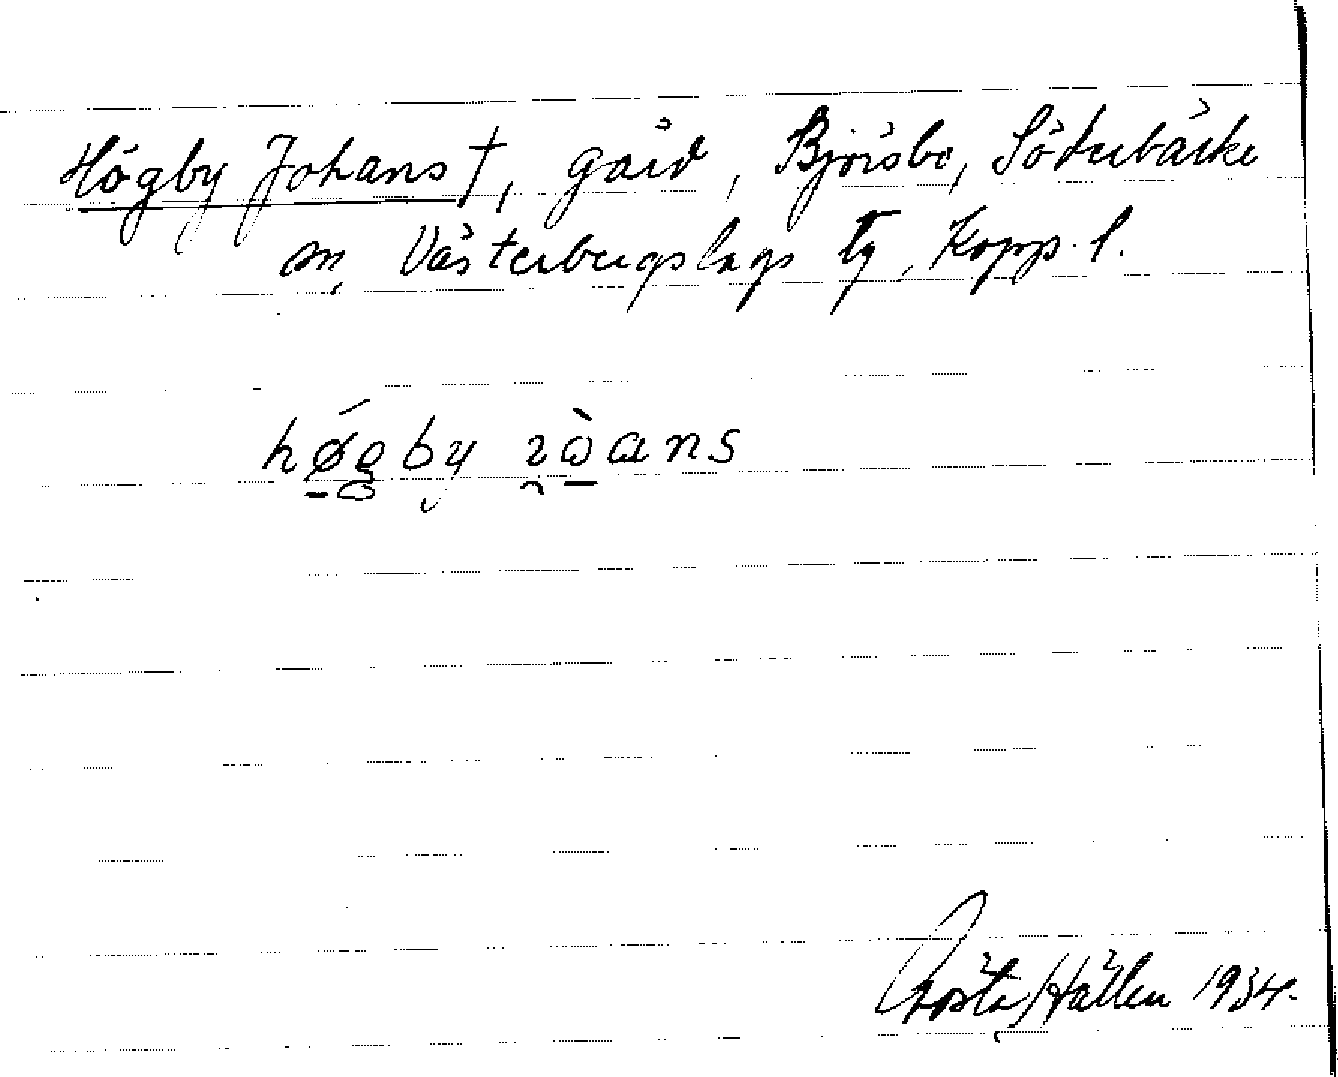 Högby Johans †, gård, Björsbo, Söderbärke
sn, Västerbergslags tg, Kopp. l.
høgby ɿòans
Gösta Hållen 1934.